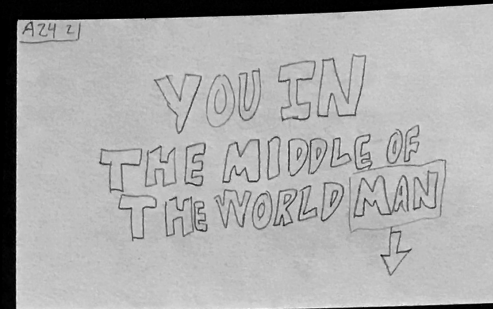 A24 2
YOU IN
THE MIDDLE OF
THE WORLD MAN